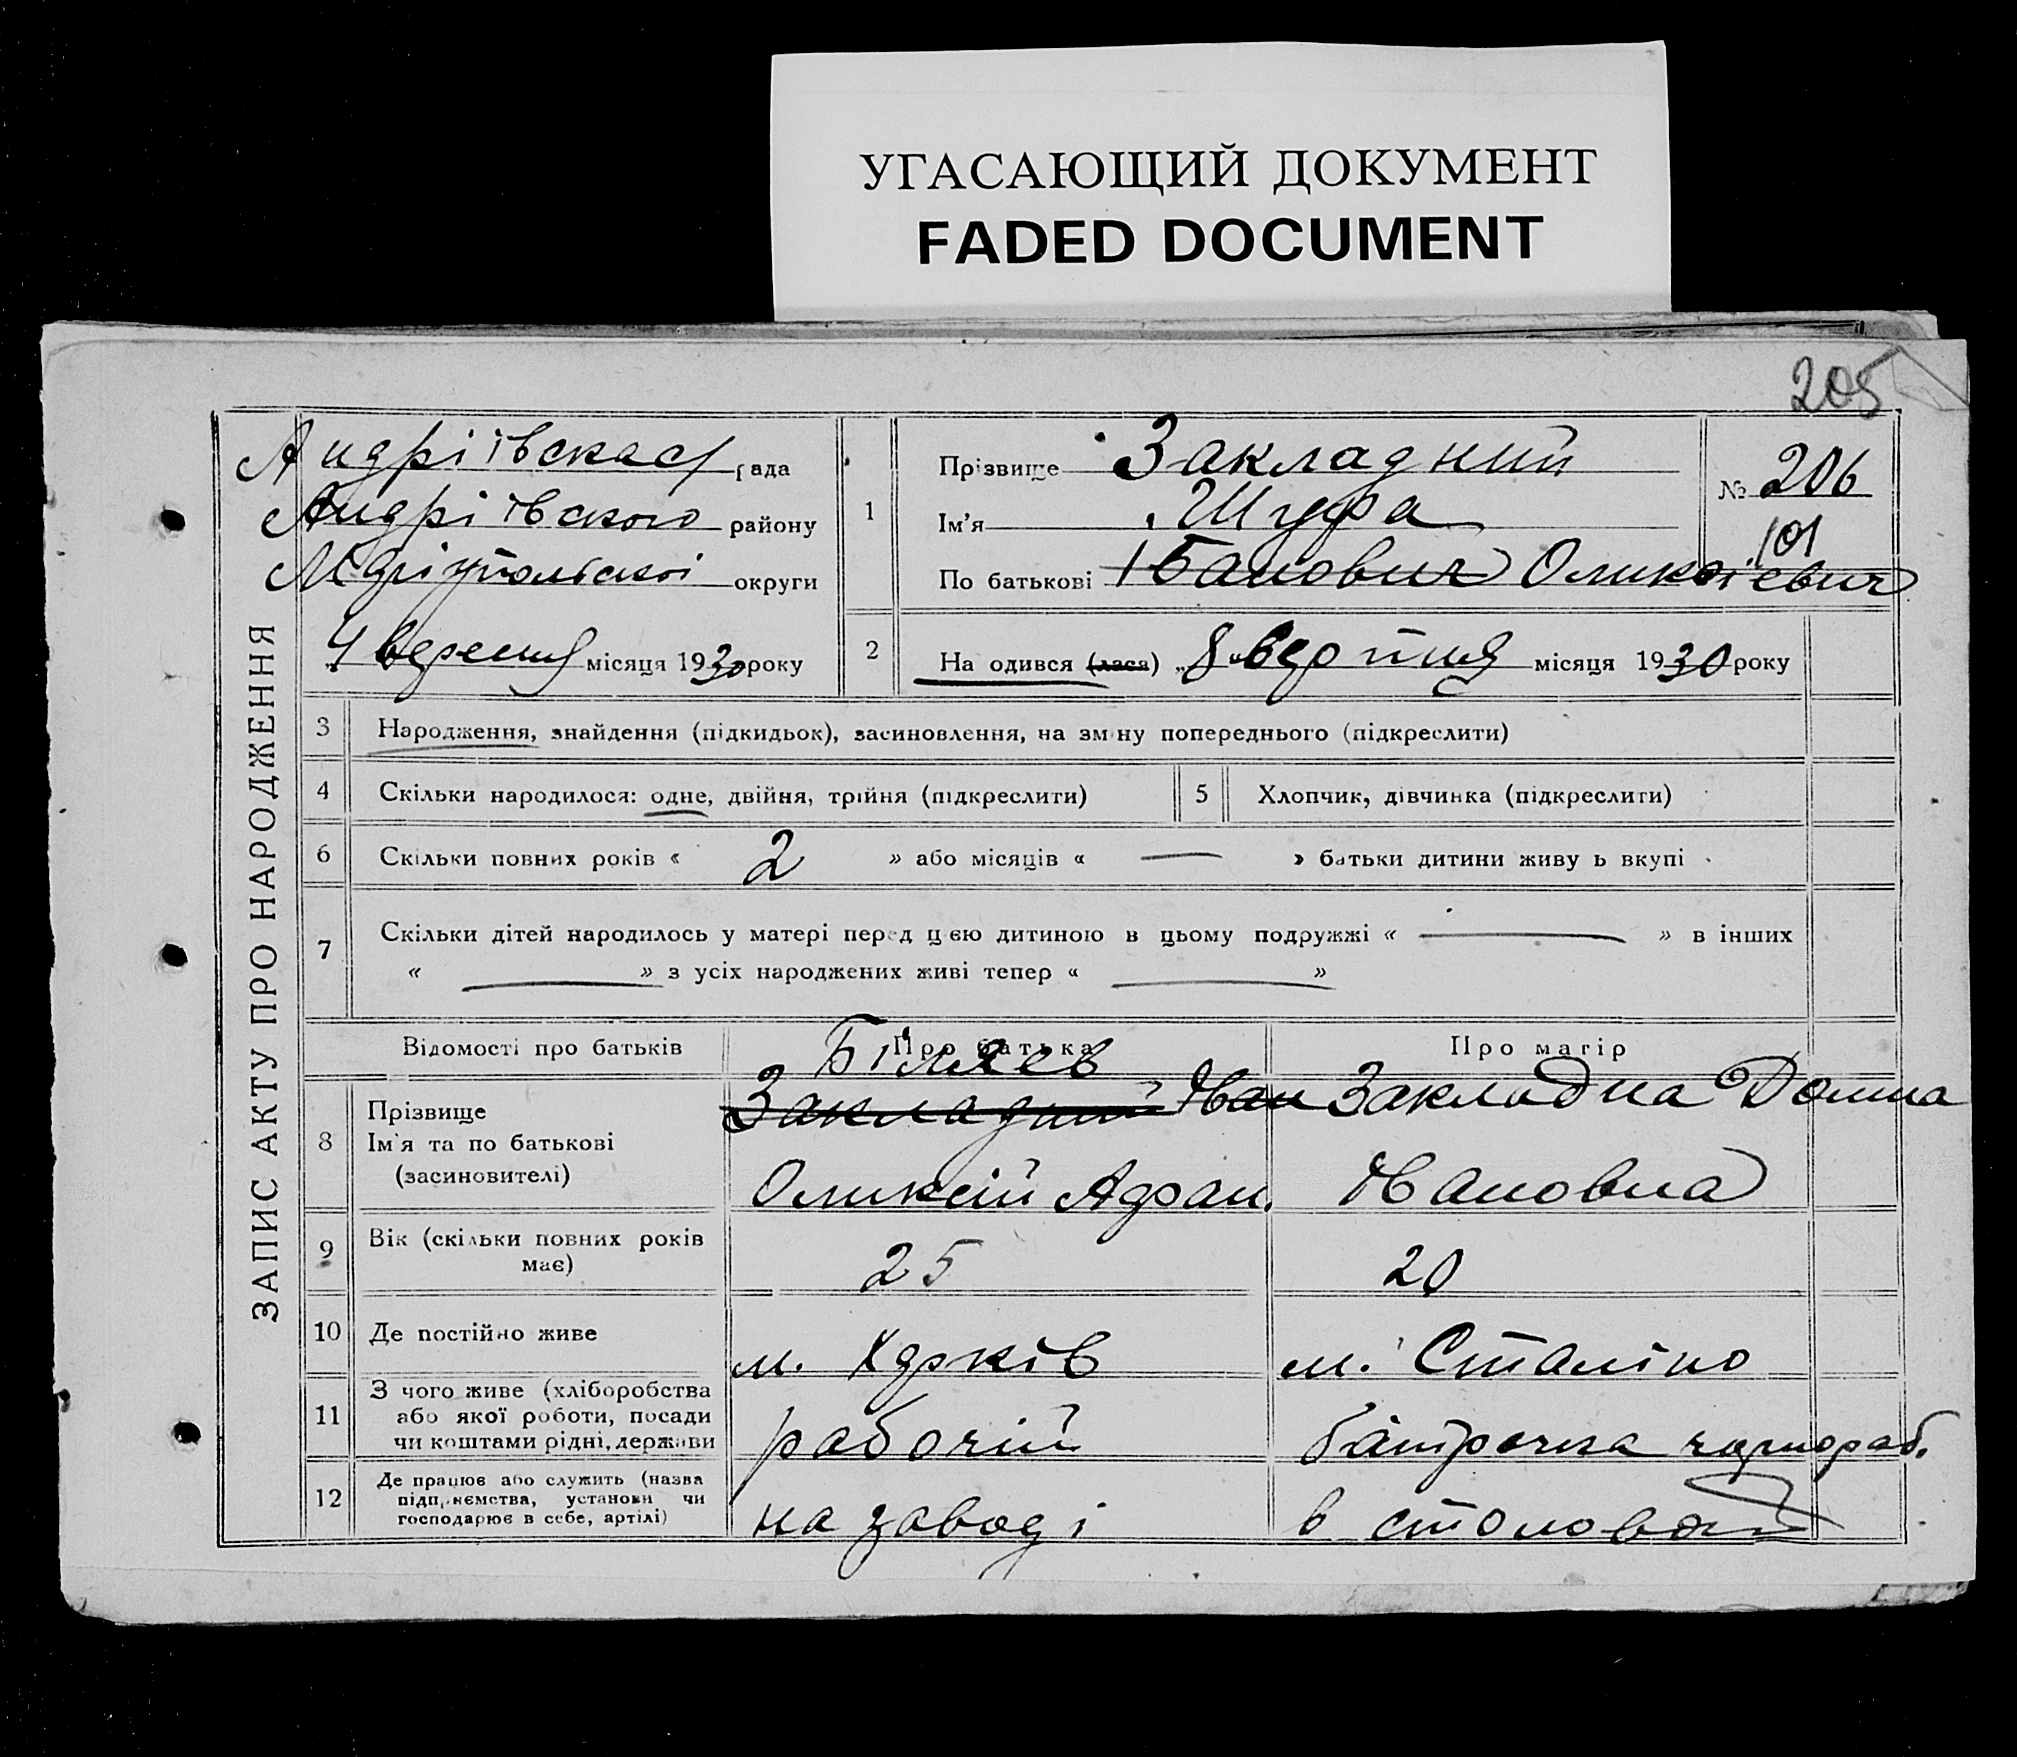 УГАСАЮЩИЙ ДОКУМЕНТ
FADED DOCUMENT
205
ЗАПИС АКТУ ПРО НАРОДЖЕННЯ
Андріївская рада
Андріївского району
Маріупольскої округи
4 вересня місяця 1930 року
1
Прізвище Закладний
Ім'я Шура
По батькові Іванович Оликсієвич
№ 206
101
2
На одився (лася) „8“ вересня місяця 1930 року
3 Народження, знайдення (підкидьок), засиновлення, на зміну попереднього (підкреслити)
4 Скільки народилося: одне, двійня, трійня (підкреслити)
5 Хлопчик, дівчинка (підкреслити)
6 Скільки повних років « 2 » або місяців « — » батьки дитини живу ь вкупі
7 Скільки дітей народилось у матері перед цією дитиною в цьому подружжі « — » в інших
« — » з усіх народжених живі тепер « — »
Відомості про батьків
Про батька
Про матір
8 Прізвище
Ім'я та по батькові
(засиновителі)
Біляєв
Закладний Іван
Оликсій Адран.
Закладна Домна
Івановна
9 Вік (скільки повних років
має)
25
20
10 Де постійно живе
м. Харків
м. Сталіно
11 З чого живе (хліборобства
або якої роботи, посади
чи коштами рідні, держави
рабочій
батрачка чорнораб.
12 Де працює або служить (назва
підприємства, установи чи
господарює в себе, артілі)
на заводі
в столовой